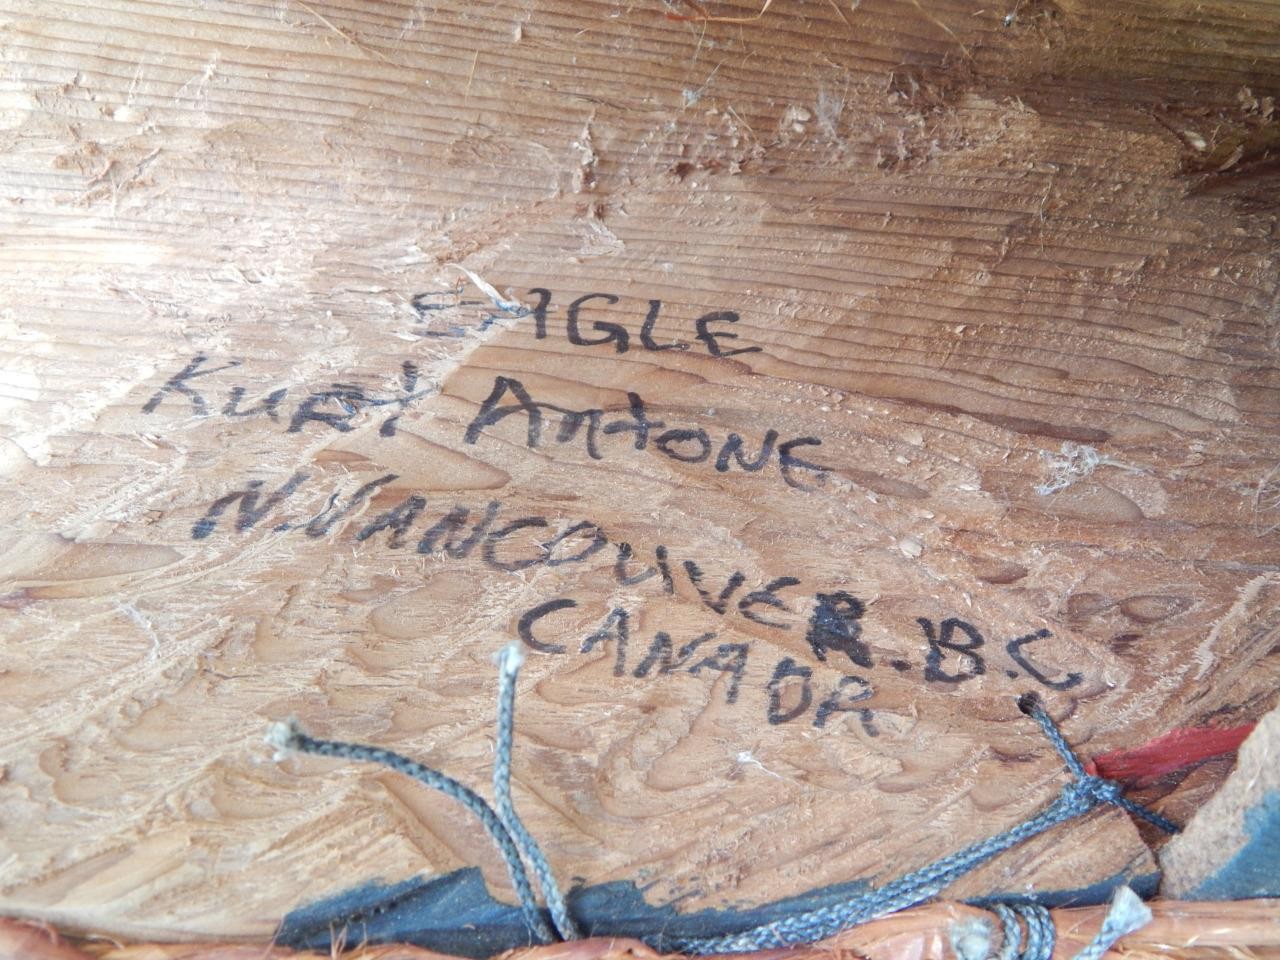 EAGLE
KURT ANTONE
N.VANCOUVER.B.C
CANADA